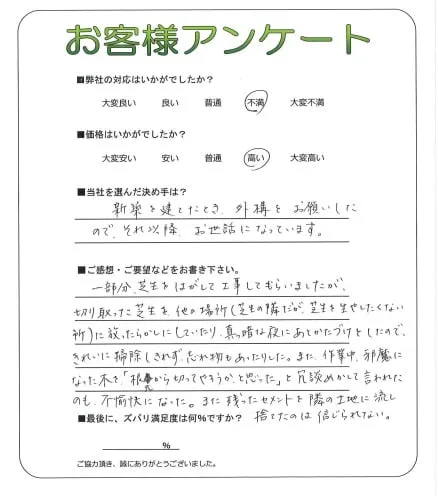 お客様アンケート
■弊社の対応はいかがでしたか？
大変良い 良い 普通 不満 大変不満
■価格はいかがでしたか？
大変安い 安い 普通 高い 大変高い
■当社を選んだ決め手は？
新築を建てたとき、外構をお願いした
ので、それ以降、お世話になっています。
■ご感想・ご要望などをお書き下さい。
一部分、芝生をはがして工事してもらいましたが、
切り取った芝生を、他の場所(芝生の隣だが、芝生を生やしたくない
所)に放ったらかしにしていたり、真っ暗な夜にあとかたづけをしたので、
きれいに掃除しきれず、忘れ物もあったりした。また、作業中、邪魔に
なった木を「根から切ってやろうか、と思った」と冗談めかして言われた
のも、不愉快になった。また残ったセメントを隣の土地に流し
捨てたのは信じられない。
■最後に、ズバリ満足度は何％ですか？
％
ご協力頂き、誠にありがとうございました。